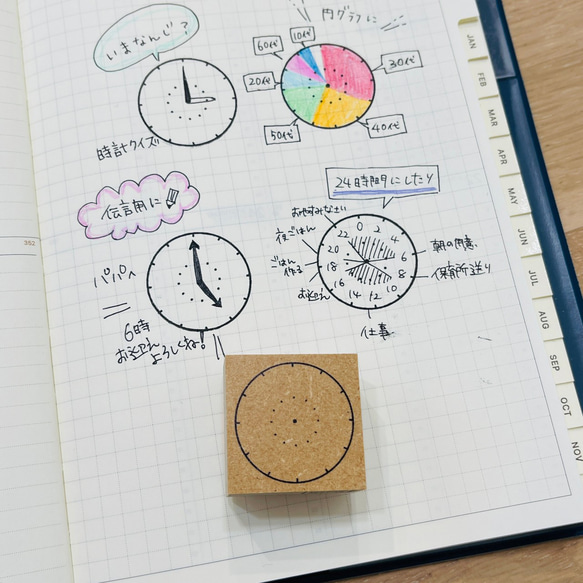 いまなんじ?
時計クイズ
円グラフに
10代
60代
20代
50代
30代
40代
伝言用に
パパへ
6時
お迎え
よろしくね!
24時間にしたり
おやすみなさい
夜ごはん
ごはん
作る
お迎え
0
2
4
6
8
10
12
14
16
18
20
22
朝の用意
保育所送り
仕事
352
JAN
FEB
MAR
APR
MAY
JUN
JUL
AUG
SEP
OCT
NOV